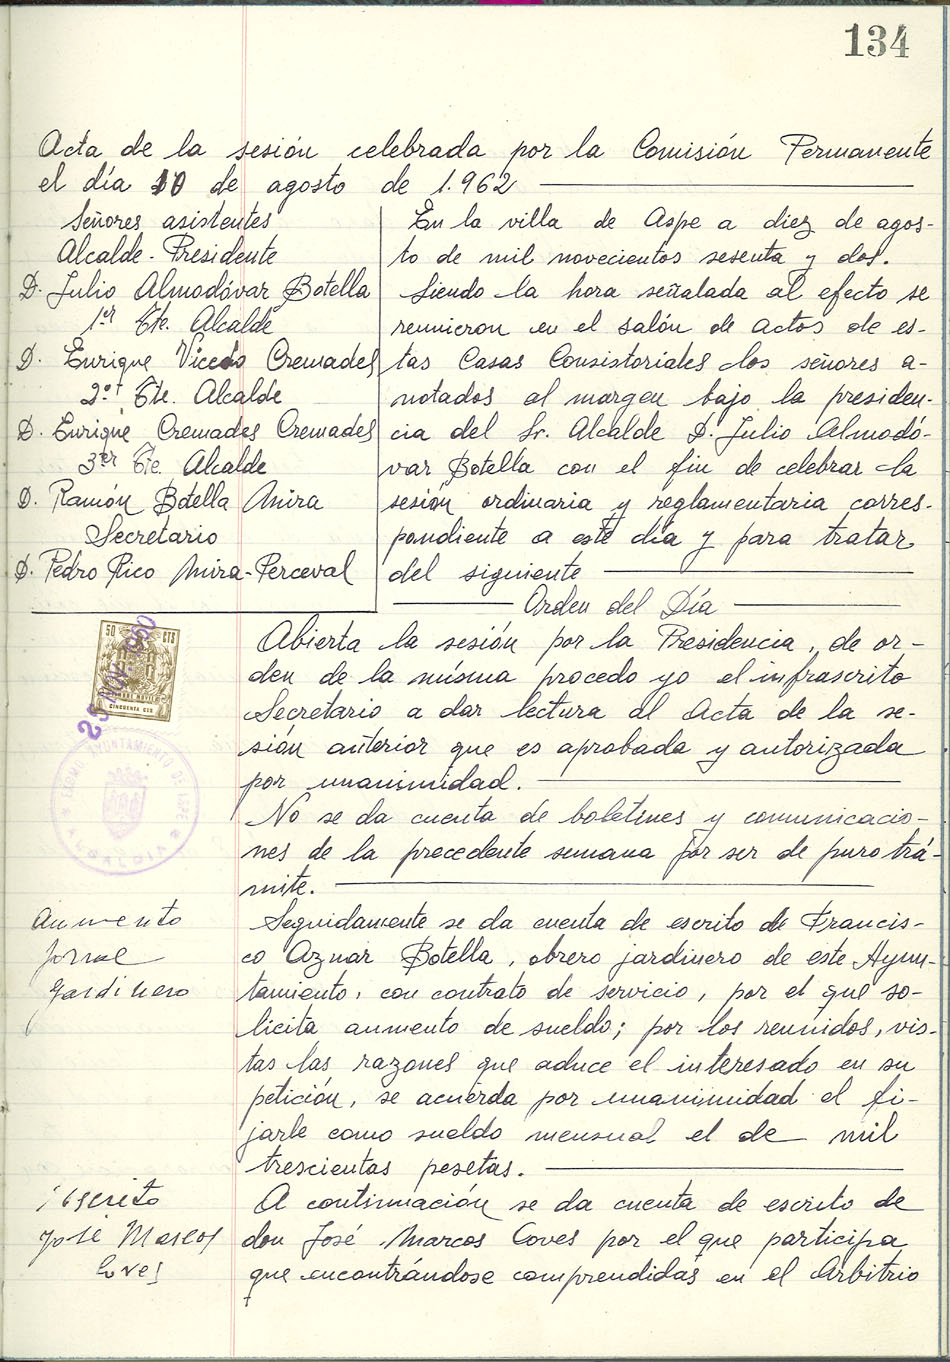 134
Acta de la sesión celebrada por la Comisión Permanente
el día 10 de agosto de 1.962
Señores asistentes
Alcalde-Presidente
D. Julio Almodóvar Botella
1er Tte. Alcalde
D. Enrique Vicedo Cremades
2º Tte. Alcalde
D. Enrique Cremades Cremades
3er Tte. Alcalde
D. Ramón Botella Mira
Secretario
D. Pedro Rico Mira-Perceval
En la villa de Aspe a diez de agos-
to de mil novecientos sesenta y dos.
Siendo la hora señalada al efecto se
reunieron en el salón de actos de es-
tas Casas Consistoriales los señores a-
notados al margen bajo la presiden-
cia del Sr. Alcalde D. Julio Almodó-
var Botella con el fin de celebrar la
sesión ordinaria y reglamentaria corres-
pondiente a este día y para tratar
del siguiente
Orden del Día
50 CTS
CINCUENTA CTS
25 NOV. 1960
AYUNTAMIENTO DE ASPE
ALCALDIA
Abierta la sesión por la Presidencia, de or-
den de la misma procedo yo el infrascrito
Secretario a dar lectura al Acta de la se-
sión anterior que es aprobada y autorizada
por unanimidad.
No se da cuenta de boletines y comunicacio-
nes de la precedente semana por ser de puro trá-
mite.
Aumento
jornal
jardinero
Seguidamente se da cuenta de escrito de Francis-
co Aznar Botella, obrero jardinero de este Ayun-
tamiento, con contrato de servicio, por el que so-
licita aumento de sueldo; por los reunidos, vis-
tas las razones que aduce el interesado en su
petición, se acuerda por unanimidad el fi-
jarle como sueldo mensual el de mil
trescientas pesetas.
Escrito
José Marcos
Coves
A continuación se da cuenta de escrito de
don José Marcos Coves por el que participa
que encontrándose comprendidas en el Arbitrio